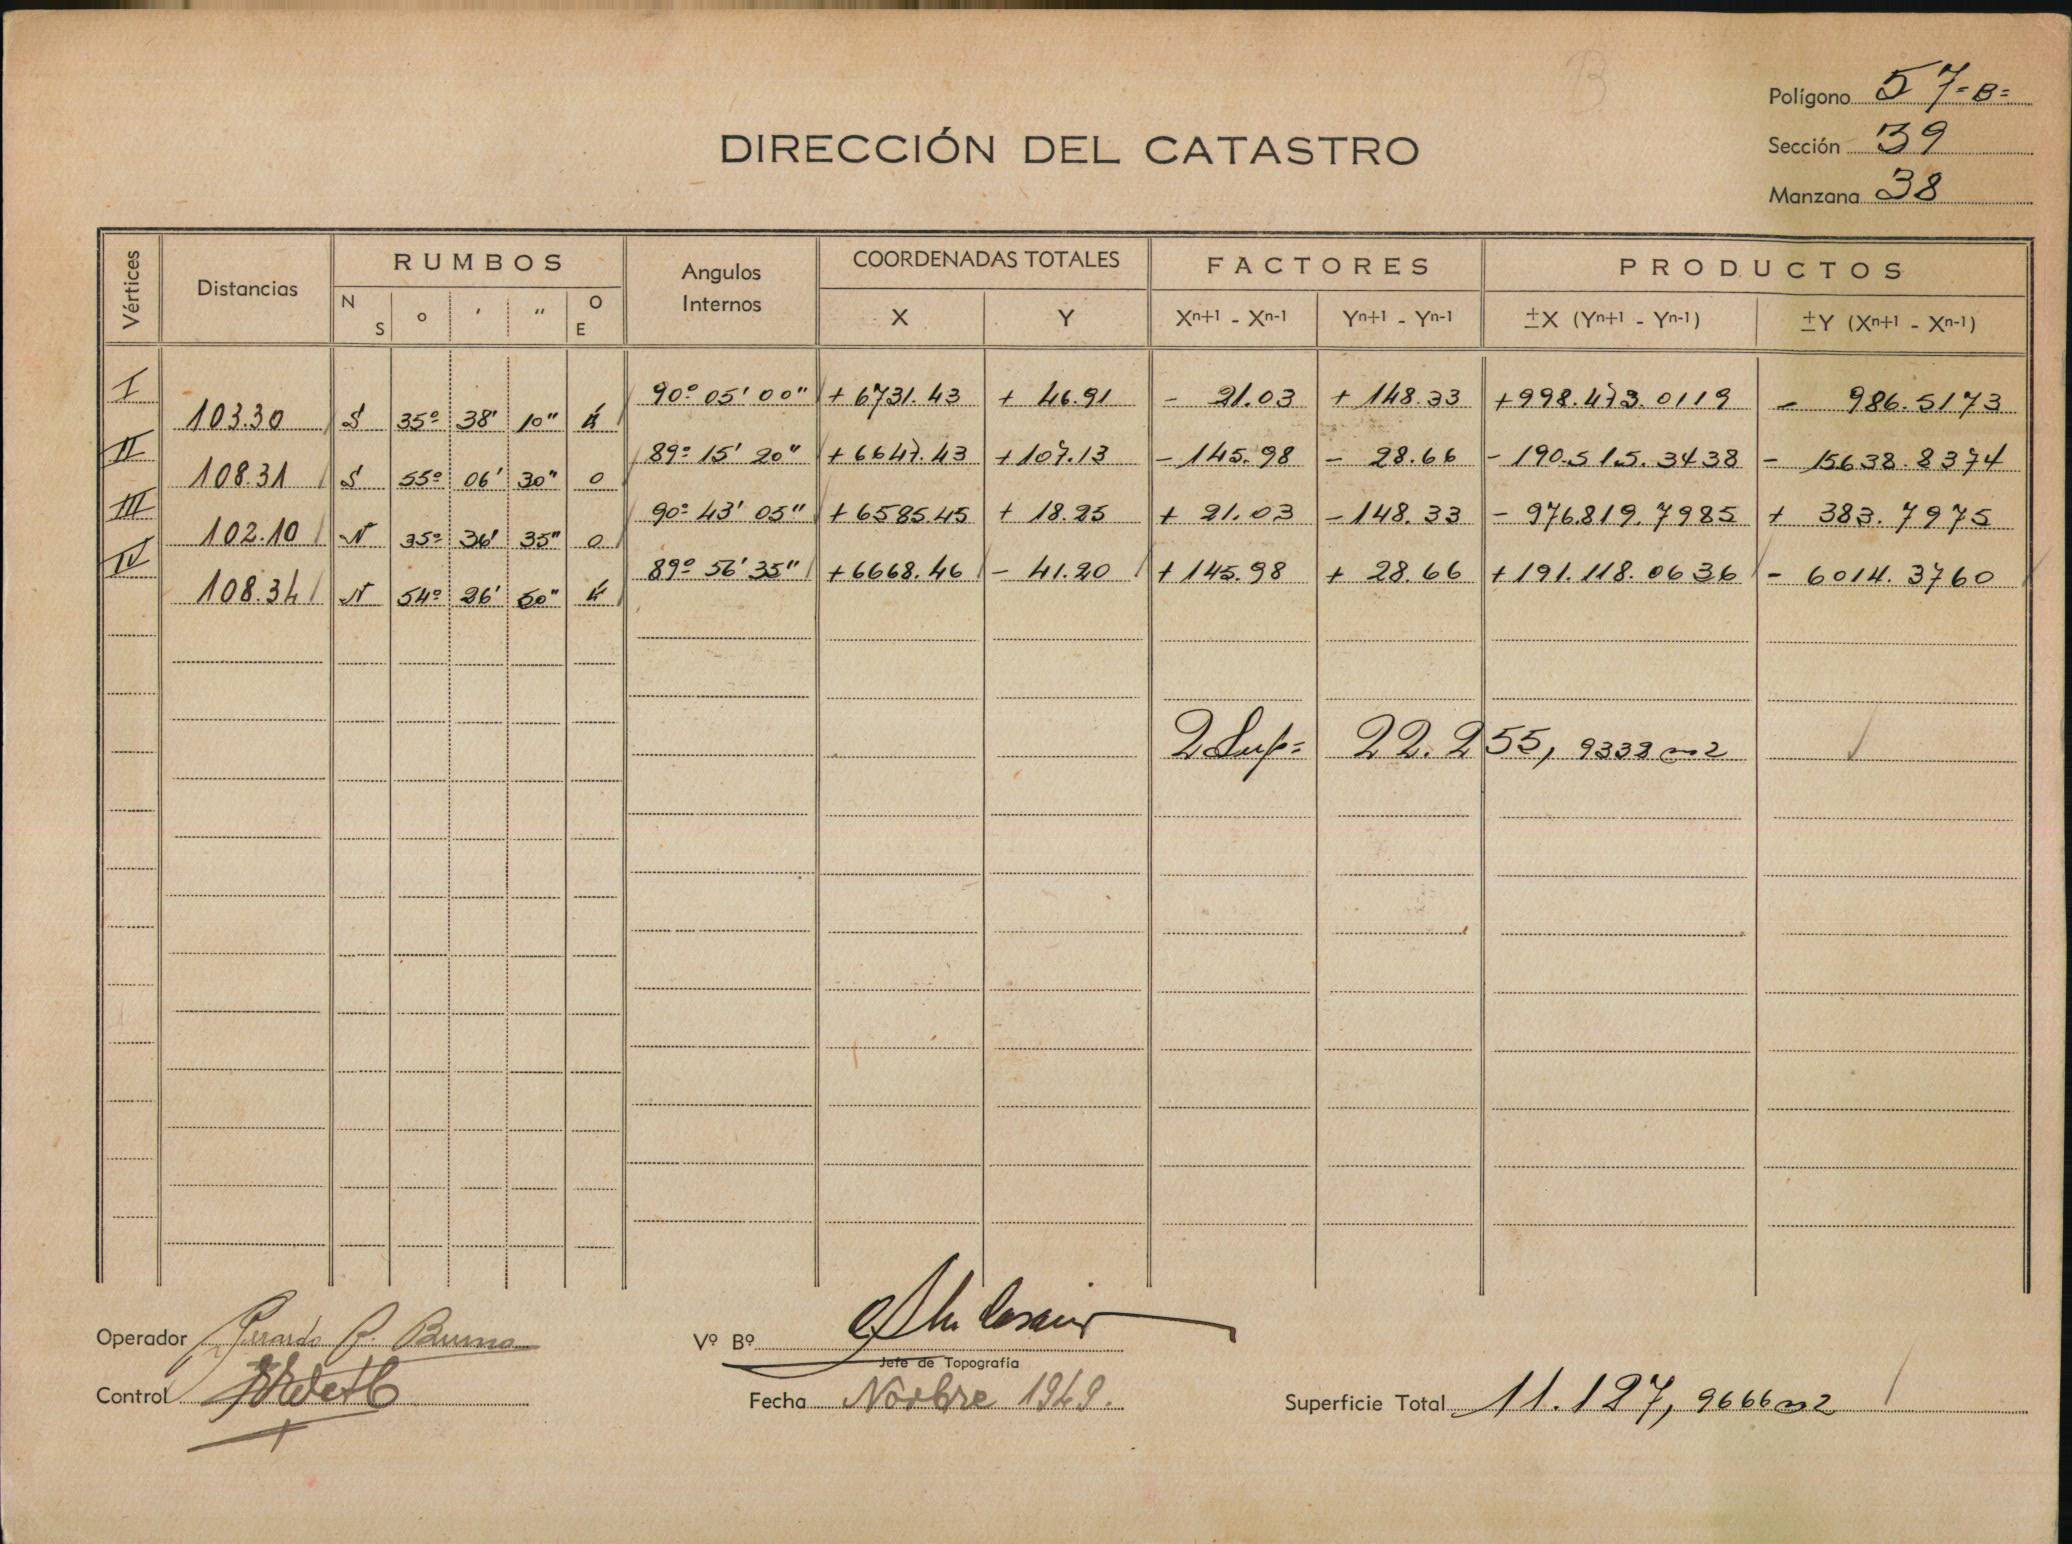 Polígono 57-B-
Sección 39
Manzana 38
DIRECCIÓN DEL CATASTRO
Vértices Distancias RUMBOS Angulos Internos COORDENADAS TOTALES FACTORES PRODUCTOS
N S o ' " O E X Y Xn+1 - Xn-1 Yn+1 - Yn-1 ±X (Yn+1 - Yn-1) ±Y (Xn+1 - Xn-1)
I 90º 05' 00" + 6731.43 + 46.91 - 21.03 + 148.33 +998.473.0119 - 986.5173
103.30 S 35º 38' 10" E
II 89º 15' 20" + 6647.43 +107.13 - 145.98 - 28.66 - 190.515.3438 - 15638.8374
108.31 S 55º 06' 30" O
III 90º 43' 05" + 6585.45 + 18.25 + 21.03 - 148.33 - 976.819.7985 + 383.7975
102.10 N 35º 36' 35" O
IV 89º 56' 35" +6668.46 - 41.20 + 145.98 + 28.66 +191.118.0636 - 6014.3760
108.34 N 54º 26' 50" E
2 Sup= 22.255,9332 m2
Operador Gerardo
Vº Bº
Jefe de Topografía
Control
Fecha Novbre 1949.
Superficie Total 11.127,9666 m2